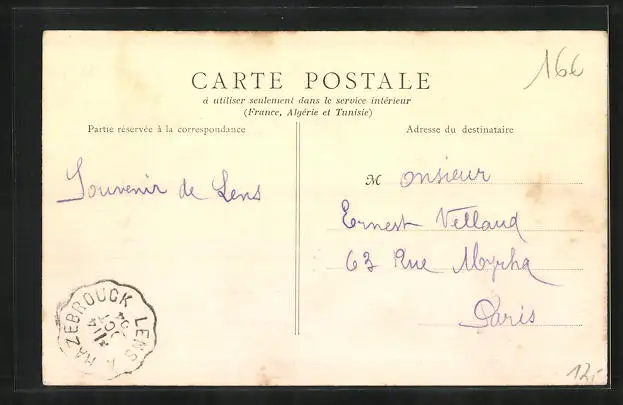 16€
CARTE POSTALE
à utiliser seulement dans le service intérieur
(France, Algérie et Tunisie)
Partie réservée à la correspondance
Adresse du destinataire
Souvenir de Lens
M onsieur
Ernest Vellaud
63 Rue Myrha
Paris
HAZEBROUCK LENS
12,-